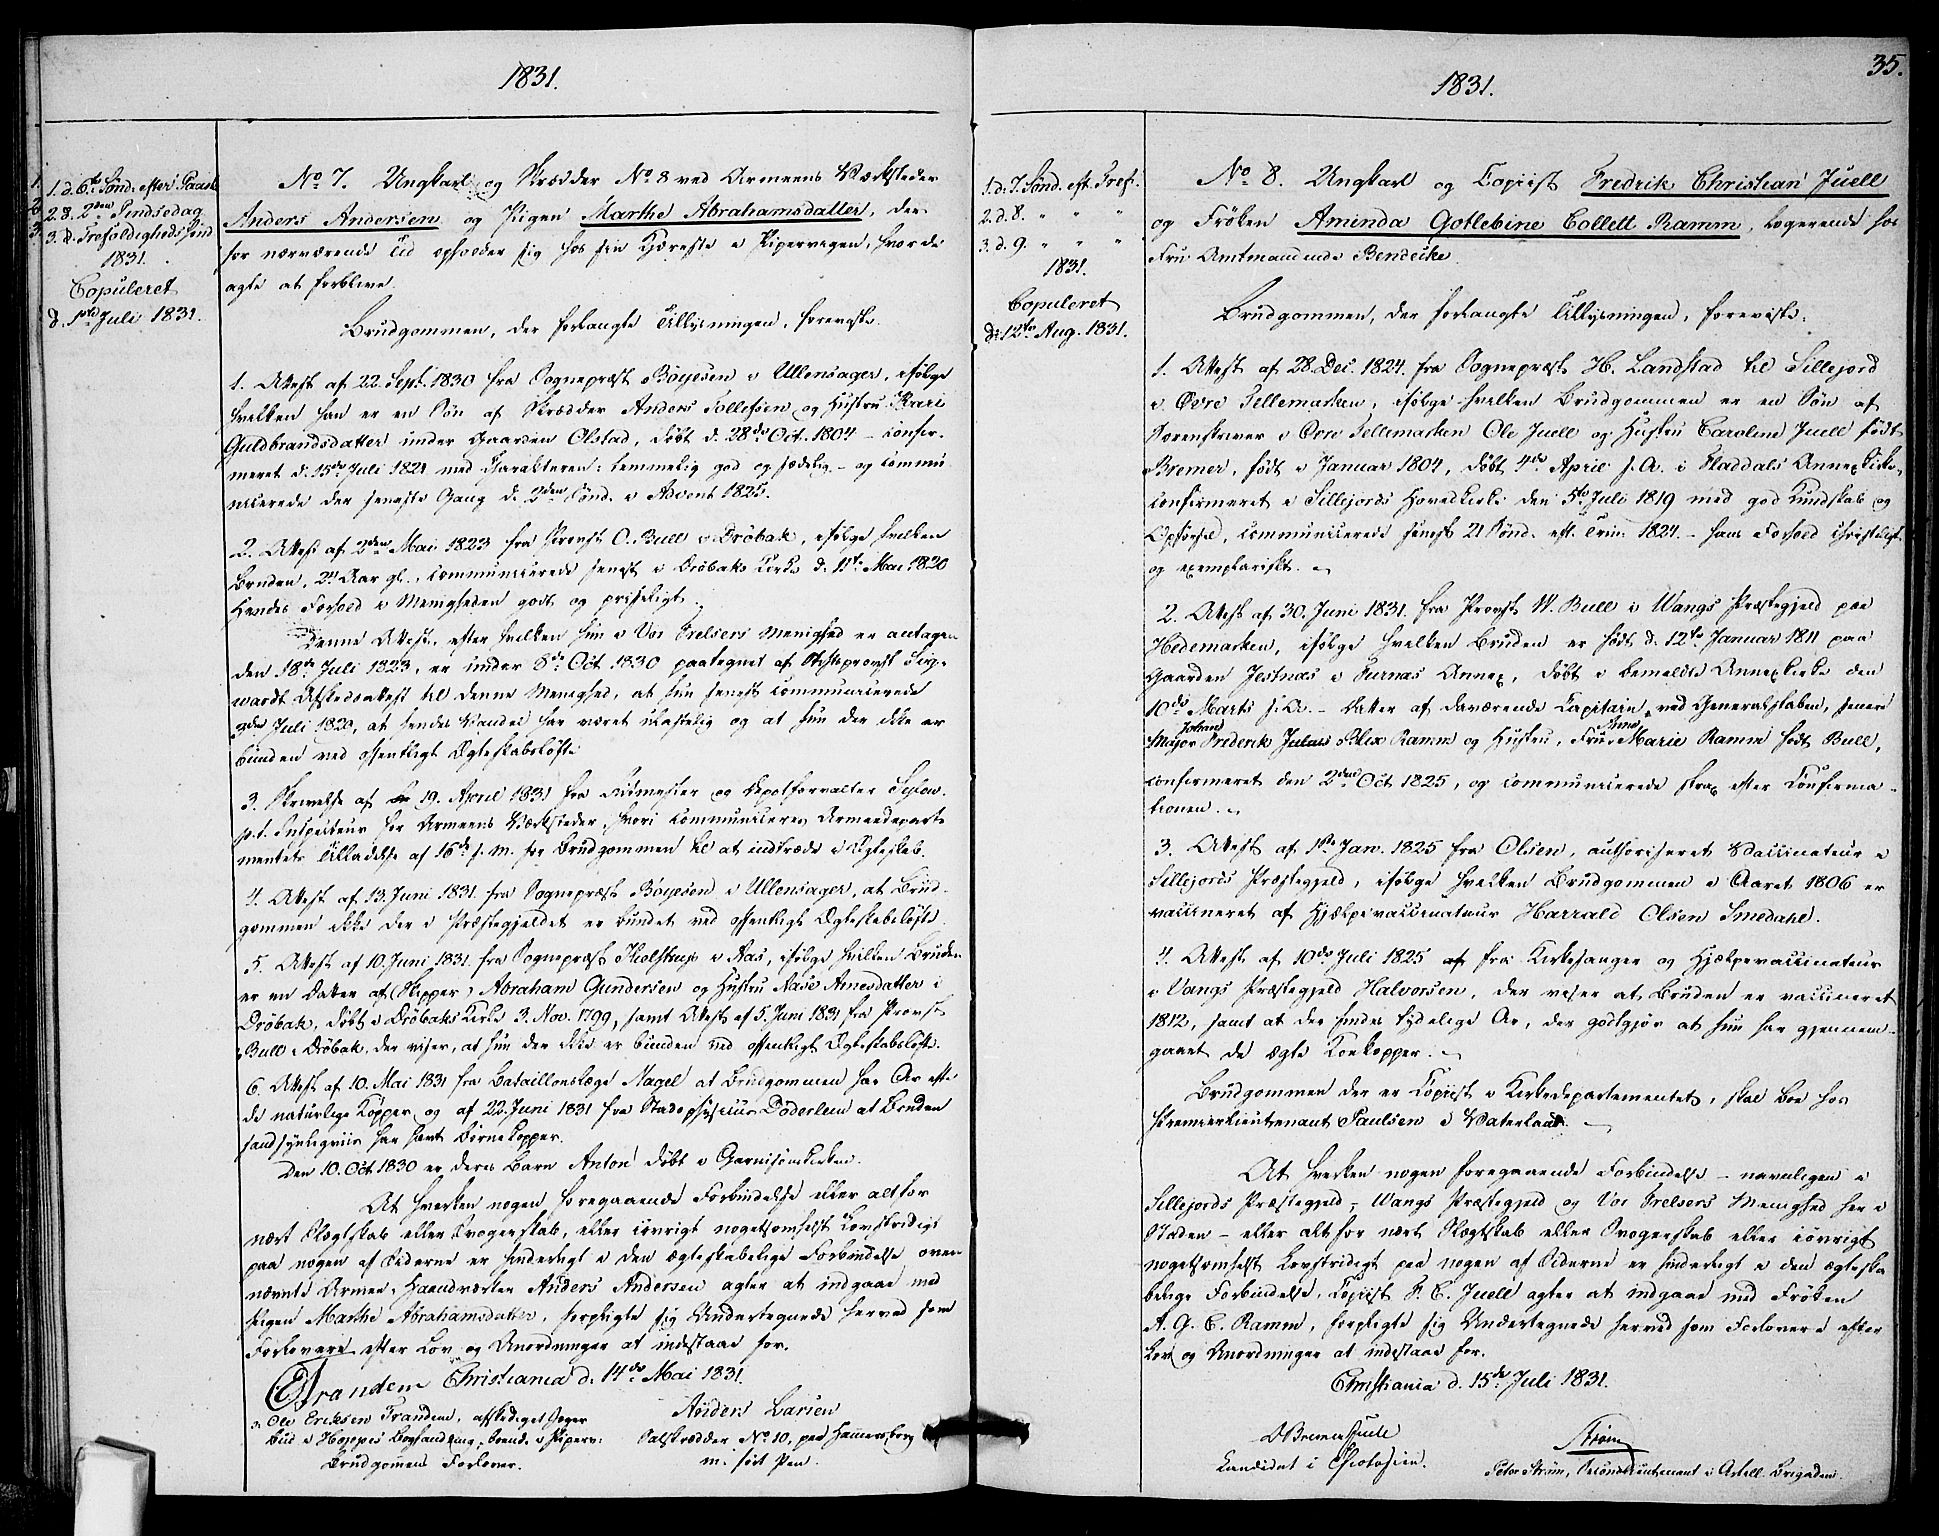 1831.
1. d. 6te Sønd. efter Paaske
2. d. 2den Pindsedag
3. d. Trefoldigheds Sønd
1831.
Copuleret
d. 1ste Juli 1831.
No 7. Ungkarl og Skrædder No 8 ved Armeens Værksteder
Anders Andersen og Pigen Marthe Abrahamsdatter, der
for nærværende Tid opholder sig hos sin Kjæreste i Pipervigen, hvor de
agte at forblive.
Brudgommen, der forlangte Tillysningen, foreviste.
1. Attest af 22. Sept. 1830 fra Sognepræst Bøyesen i Ullensager, ifølge
hvilken han er en Søn af Skrædder Anders Tollefsen og Hustru Kari
Guldbrandsdatter under Gaarden Olstad, døbt d. 28de Oct. 1804 – confir-
meret d. 15de Juli 1821 med Charakteren: temmelig god og sædelig – og commu
nicerede der seneste Gang d. 2den Sønd. i Advent 1825.
2. Attest af 2den Mai 1823 fra Provst O. Bull i Drøbak, ifølge hvilken
Bruden, 24 Aar gl., communicerede senest i Drøbaks Kirke d. 11te Mai 1820
Hendes Forhold i Menigheden godt og priseligt.
Denne Attest, efter hvilken hun i Vor Frelsers Menighed er antagen
den 18de Juli 1823, er under 8de Oct. 1830 paategnet af Stiftsprovst
Afskedsattest til denne Menighed, at hun senest communicerede
Juli 1820, at hendes Vandel har været ulastelig og at hun der ikke er
bunden ved offentligt Ægteskabsløfte
3. Skrivelse af 19. April 1831 fra Ritmester og Depotforvalter
p.t. Inspecteur for Armeens Værksteder, hvori communiceres Armeedeparte
mentets Tilladelse af 16de s. M. for Brudgommen til at indtræde i Ægteskab.
4. Attest af 13. Juni 1831. fra Sognepræst Bøyesen i Ullensager, at Brud-
gommen ikke der i Præstegjeldet er bundet ved offentligt Ægteskabsløfte.
5. Attest af 10. Juni 1831. fra Sognepræst Holstrup i Aas, ifølge hvilken Bruden
er en Datter af (Skipper) Abraham Gundersen og Hustru Aase Arnesdatter i
Drøbak, døbt i Drøbaks Kirke 3. Nov. 1799, samt Attest af 5. Juni 1831 fra Provst
Bull i Drøbak, der viser, at hun der ikke er bunden ved offentligt Ægteskabsløfte.
6. Attest af 10. Mai 1831 fra Bataillonslæge Nagel at Brudgommen har Ar efter
de naturlige Kopper og af 22. Juni 1831 fra Stadsphysicus Døderlein at Bruden
sandsynligviis har havt Børnekopper.
Den 10. Oct. 1830 er deres Barn Anton døbt i Garnisonskirken.
At hverken nogen foregaaende Forbindelse eller alt for
nært Slægtskab eller Svogerskab, eller iøvrigt nogetsomhelst Lovstridigt
paa nogen af Siderne er hinderligt i den ægteskabelige Forbindelse oven
nævnte Armee-Haandværker Anders Andersen agter at indgaae med
Pigen Marthe Abrahamsdatter, forpligte sig Undertegnede herved som
Forlovere efter Lov og Anordninger at indestaae for.
Christiania d. 14de Mai 1831.
Tranden
Ole Eriksen Tranden, afskediget Jæger
Bud i Hoppes Boghandling, boende i Piperv:
Brudgomens Forlover.
Anders Larsen
Salskrædder No 10, paa Hammersborg
m. ført Pen.
35.
1831.
1. d. 7. Sønd. eft. Tref.
2. d. 8. " " "
3. d. 9. " " "
1831.
Copuleret
d: 12te Aug. 1831.
No 8. Ungkarl og Copiist Fredrik Christian Juell
og Frøken Aminda Gotlebine Collett Ramm, logerende hos
Fru Amtmandinde Bendecke.
Brudgommen, der forlangte Tillysningen, foreviste:
1. Attest af 28. Dec. 1824. fra Sognepræst H. Landstad til Sillejord
i Øvre Tellemarken, ifølge hvilken Brudgommen er en Søn af
Sorenskriver i Øvre Tellemarken Ole Juell og Hustru Caroline Juell født
Bremer, født i Januar 1804, døbt 4de April s. A. i Fladdals Annexkirke,
confirmeret i Sillejords Hovedkirke den 5te Juli 1819 med god Kundskab og
Opførsel, communicerede senest 21 Sønd. eft. Trin. 1824. – hans Forhold christeligt
og exemplariskt.
2. Attest af 30. Juni 1831. fra Provst W. Bull i Wangs Præstegjeld paa
Hedemarken, ifølge hvilken Bruden er født d. 12te Januar 1811 paa
Gaarden Jestnæs i Furnæs Annex, døbt i bemeldte Annexkirke den
10de Marts s. A. – Datter af daværende Capitain ved Generalstaben, senere
Johan Anne
Major Frederik Julius Blix Ramm og Hustru, Fru Marie Ramm født Bull,
confirmeret den 2den Oct 1825, og communicerede strax efter Confirma-
tionen.
3. Attest af 1ste Jan. 1825 fra Olsen, authoriseret Vaccinateur i
Sillejords Præstegjeld, ifølge hvilken Brudgommen i Aaret 1806 er
vaccineret af Hjælpevaccinateur Harrald Olsen Smedahl.
4. Attest af 10de Juli 1825 af fra Kirkesanger og Hjælpevaccinateur
i Vangs Præstegjeld Halvorsen, der viser at Bruden er vaccineret
1812, samt at der findes tydelige Ar, der godtgjør at hun har gjennem-
gaaet de ægte Kokopper.
Brudgommen der er Copiist i Kirkedepartementet, skal boe hos
Premierlieutenant Paulsen i Vaterland.
At hverken nogen foregaaende Forbindelse – navnligen i
Sillejords Præstegjeld, Wangs Præstegjeld og Vor Frelsers Menighed her i
Staden – eller alt for nært Slægtskab eller Svogerskab eller iøvrigt
nogetsomhelst Lovstridigt paa nogen af Siderne er hinderligt i den ægteska
belige Forbindelse, Copiist F. C. Juell agter at indgaae med Frøken
A. G. C. Ramm, forpligte sig Undertegnede herved som Forlovere efter
Lov og Anordninger at indestaae for.
Christiania d. 15de Juli 1831.
O Bremer Juell
Kandidat i Theologien.
Strøm
Peter Strøm, Secondlieutenant i Artill. Brigaden.